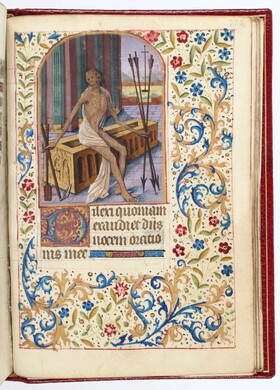 Dilexi quoniam
exaudiet dns
vocem oratio
nis mee